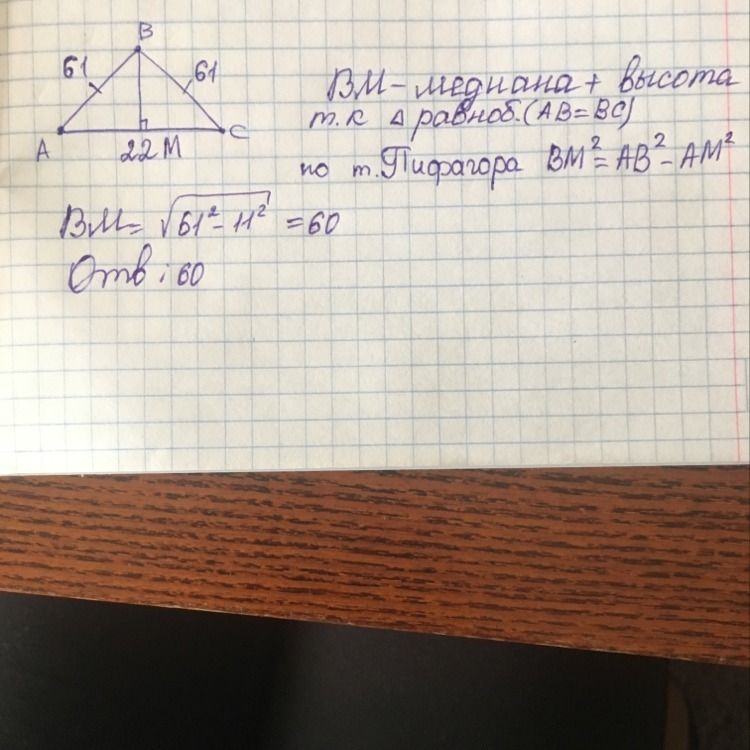 B
61 61
A 22 M C
BM - медиана + высота
т.к △ равноб. (AB=BC)
по т. Пифагора BM² = AB² - AM²
BM = √61² - 11² = 60
Отв: 60